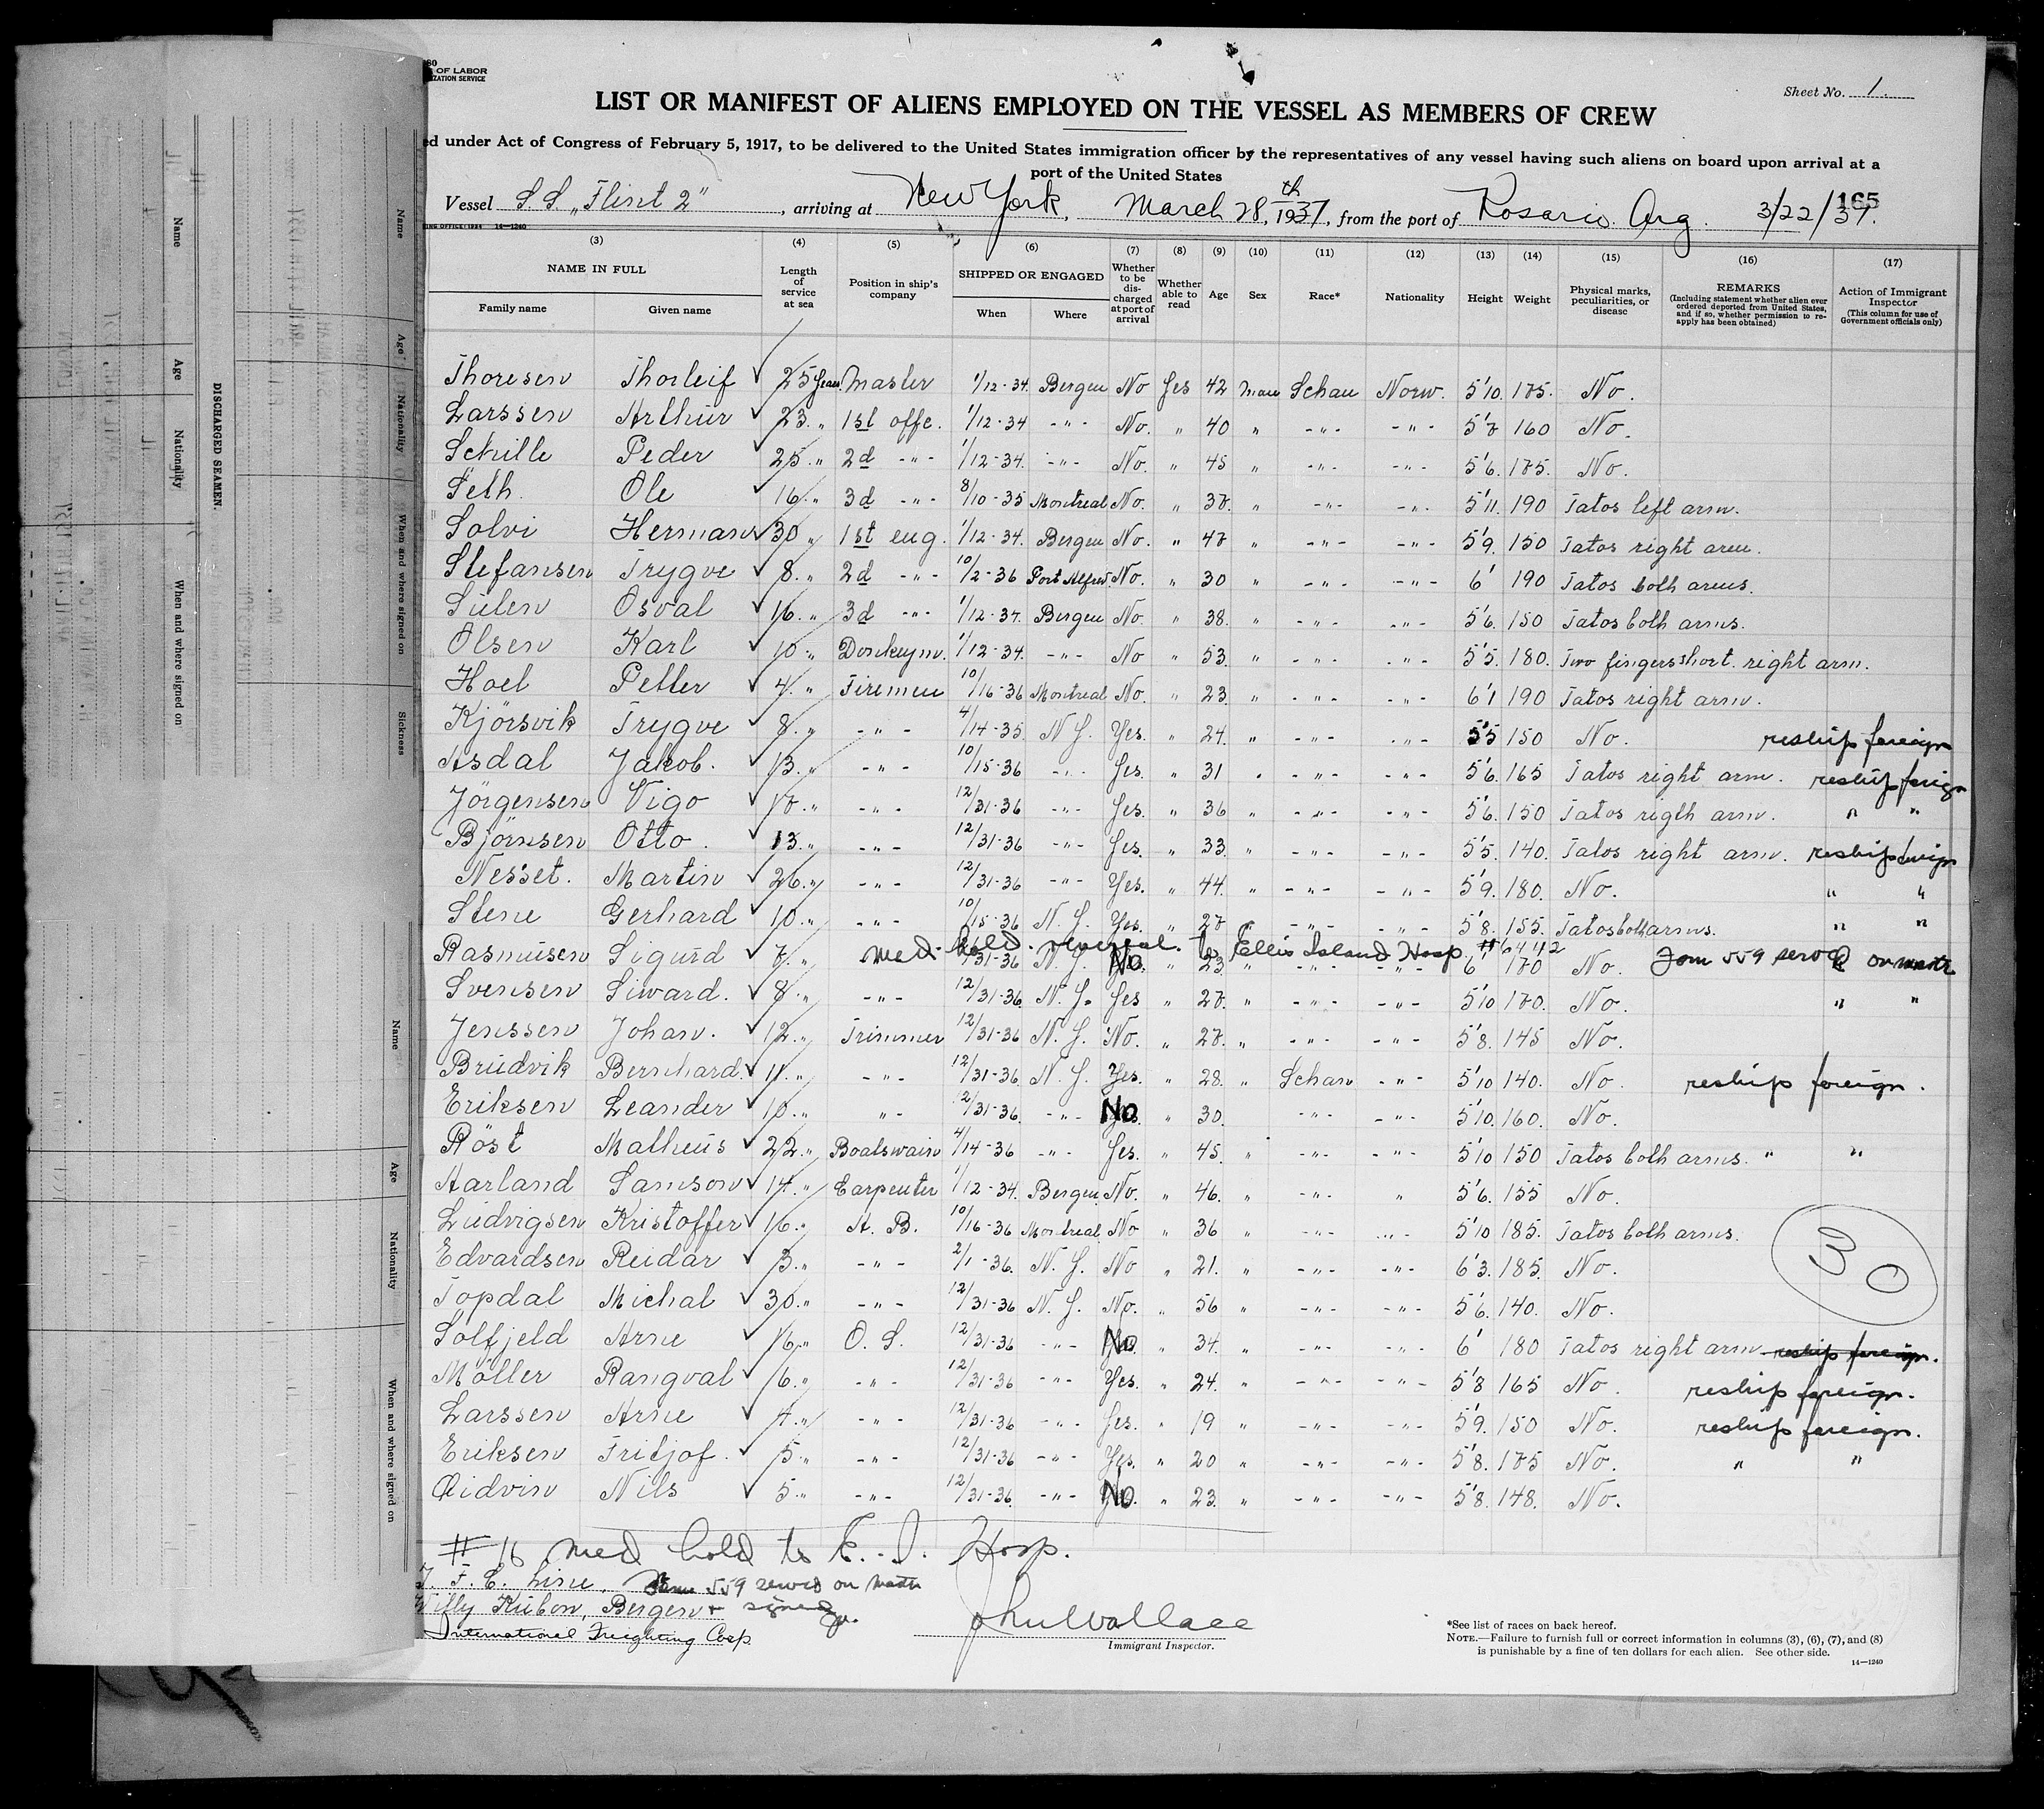 80
OF LABOR
IZATION SERVICE
Sheet No. 1.
LIST OR MANIFEST OF ALIENS EMPLOYED ON THE VESSEL AS MEMBERS OF CREW
ed under Act of Congress of February 5, 1917, to be delivered to the United States immigration officer by the representatives of any vessel having such aliens on board upon arrival at a
port of the United States
Vessel S.S. „Flint 2", arriving at New York, March 28th, 1937, from the port of Rosario Arg. 3/22/37. 165
ING OFFICE: 1934 14—1240
(3) (4) (5) (6) (7) (8) (9) (10) (11) (12) (13) (14) (15) (16) (17)
NAME IN FULL
Family name Given name
Length of service at sea
Position in ship's company
SHIPPED OR ENGAGED
When Where
Whether to be discharged at port of arrival
Whether able to read
Age Sex Race* Nationality Height Weight
Physical marks, peculiarities, or disease
REMARKS
(Including statement whether alien ever ordered deported from United States, and if so, whether permission to reapply has been obtained)
Action of Immigrant Inspector
(This column for use of Government officials only)
Thoresen Thorleif ✓ 25 years Master 1/12-34. Bergen No Yes 42 Male Schan Norw. 5'10. 175. No.
Larssen Arthur ✓ 23 „ 1st offc. 1/12-34 -„- No. „ 40 „ -„- -„- 5'7 160 No.
Schille Peder ✓ 25 „ 2d -„- 1/12-34. -„- No. „ 45 „ -„- -„- 5'6. 175. No.
Seth. Ole ✓ 16 „ 3d -„- 8/10-35 Montreal No. „ 37. „ -„- -„- 5'11. 190 Tatos left arm.
Solvi Herman ✓ 30 „ 1st eng. 1/12-34. Bergen No. „ 47 „ -„- -„- 5'9. 150 Tatos right arm.
Stefansen Trygve ✓ 8. „ 2d -„- 10/2-36 Port Alfred. No. „ 30 „ -„- -„- 6' 190 Tatos both arms.
Sulen Osval ✓ 16. „ 3d -„- 1/12-34. Bergen No. „ 38. „ -„- -„- 5'6. 150 Tatos both arms.
Olsen Karl ✓ 10 „ Donkeym. 1/12-34. -„- No „ 53. „ -„- -„- 5'5. 180. Two fingers short. right arm.
Hoel Petter ✓ 4. „ Firemen 10/16-36 Montreal No. „ 23. „ -„- -„- 6'1 190 Tatos right arm.
Kjörsvik Trygve ✓ 8. „ -„- 4/14-35. N Y. Yes. „ 24. „ -„- -„- 5'5 150 No. reship foreign
Asdal Jakob. ✓ 13. „ -„- 10/15-36 -„- Yes. „ 31 „ -„- -„- 5'6. 165 Tatos right arm. reship foreign
Jörgensen Vigo ✓ 17. „ -„- 12/31-36 -„- Yes. „ 36 „ -„- -„- 5'6. 150 Tatos rigth arm. „ „
Björnsen Otto. ✓ 13. „ -„- 12/31-36 -„- Yes. „ 33. „ -„- -„- 5'5. 140. Tatos right arm. reship foreign
Nesset. Martin ✓ 26. „ -„- 12/31-36 -„- Yes. „ 44. „ -„- -„- 5'9. 180. No. „ „
Stene Gerhard ✓ 10. „ -„- 10/15-36 N. Y. Yes. „ 27 „ -„- -„- 5'8. 155. Tatos both arms. „ „
med. hold. to Ellis Island Hosp.
Rasmusen Sigurd ✓ 7. „ 12/31-36 N. Y. No „ 23 „ -„- -„- 6' 170 No. Form 559 served on master
Svensen Siward. ✓ 8. „ -„- 12/31-36 N. Y. Yes „ 27. „ -„- -„- 5'10 170. No. „ „
Jenssen Johan. ✓ 12. „ Trimmer 12/31-36 N. Y. No. „ 27. „ -„- -„- 5'8. 145 No.
Brudvik Bernhard. ✓ 11. „ -„- 12/31-36. N. Y. Yes. „ 28. „ Schan -„- 5'10 140. No. reship foreign.
Eriksen Leander ✓ 10. „ „- 12/31-36. -„- No „ 30. -„- -„- 5'10. 160. No.
Röst Matheus ✓ 22. „ Boatswain 4/14-36 -„- Yes. „ 45. „ -„- -„- 5'10 150 Tatos both arms. „ „
Aarland Samson ✓ 14. „ Carpenter 1/12-34. Bergen No. „ 46. „ -„- „ 5'6. 155 No.
Ludvigsen Kristoffer ✓ 16. „ A. B. 10/16-36 Montreal No „ 36 „ -„- -„- 5'10 185. Tatos both arms.
Edvardsen Reidar ✓ 3. „ -„- 2/1-36. N. Y. No „ 21. „ -„- -„- 6'3. 185. No.
30
Topdal Michal ✓ 30. „ -„- 12/31-36 N. Y. No. „ 56 „ -„- -„- 5'6. 140. No.
Solfjeld Arne ✓ 16. „ O. S. 12/31-36 -„- No „ 34. „ -„- -„- 6' 180 Tatos right arm reship foreign.
Möller Rangval ✓ 6. „ -„- 12/31-36 -„- Yes. „ 24. „ -„- -„- 5'8 165 No. reship foreign.
Larssen Arne ✓ 4. „ -„- 12/31-36 -„- Yes. „ 19 „ -„- -„- 5'9. 150 No. reship foreign.
Eriksen Fritjof. ✓ 5. „ -„- 12/31-36 -„- Yes. „ 20 „ -„- -„- 5'8. 175 No. „ „
Oidvin Nils ✓ 5. „ -„- 12/31-36. -„- No „ 23. „ -„- -„- 5'8. 148. No.
# 16 med hold to E. I. Hosp.
F. C. Line, Form 559 served on master
Willy Kubon, Bergen + signed
International Freighting Corp
John Wallace
Immigrant Inspector.
*See list of races on back hereof.
NOTE.—Failure to furnish full or correct information in columns (3), (6), (7), and (8)
is punishable by a fine of ten dollars for each alien. See other side.
14—1240
DISCHARGED SEAMEN.
Name Age Nationality When and where signed on
Name Age Nationality When and where signed on Sickness
Name Age Nationality When and where signed on